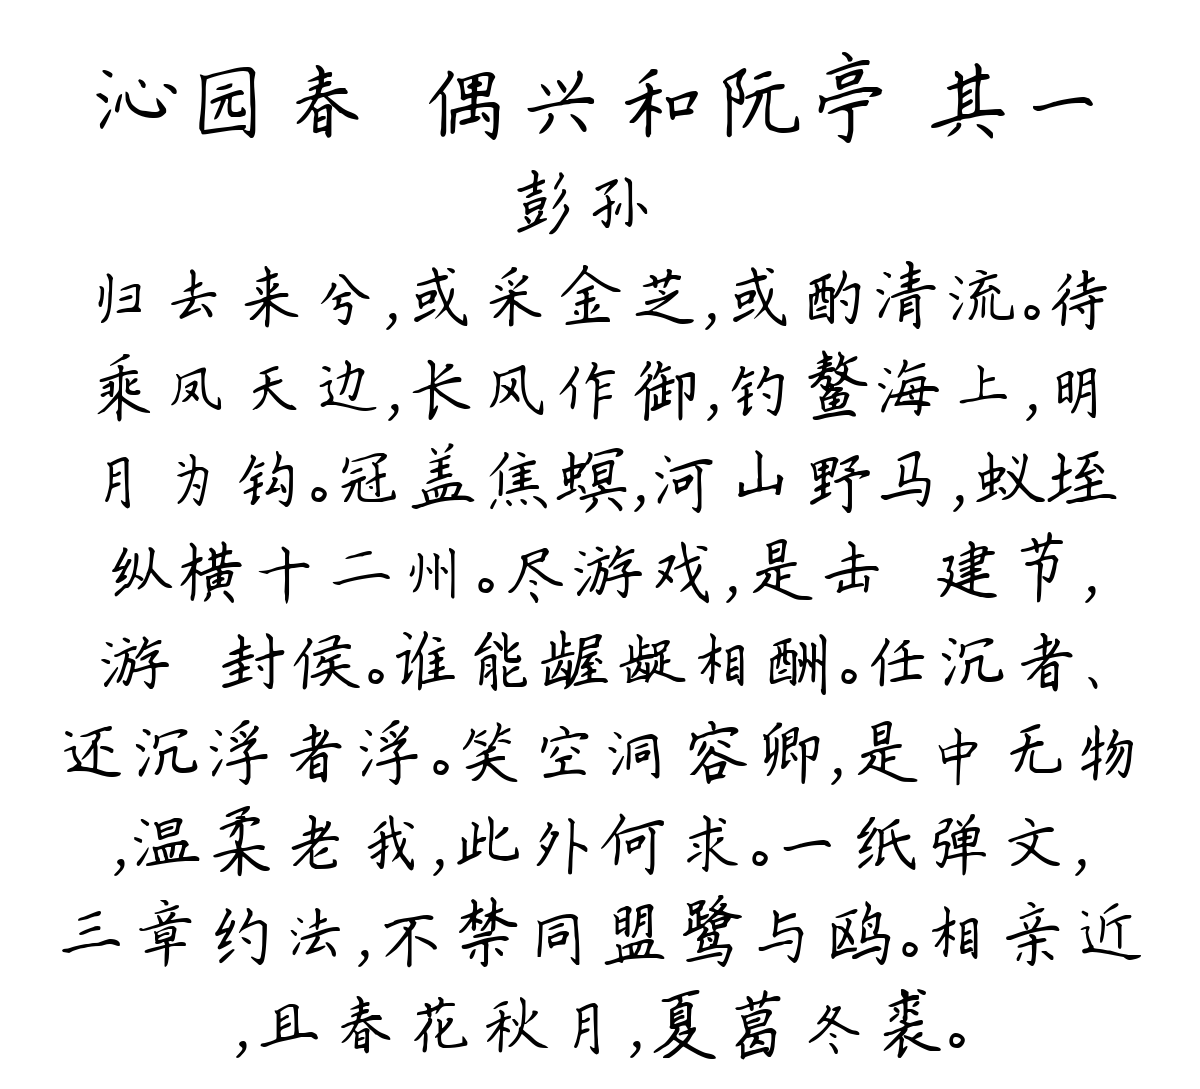 沁园春 偶兴和阮亭 其一
彭孙
归去来兮,或采金芝,或酌清流。待
乘凤天边,长风作御,钓鳌海上,明
月为钩。冠盖焦螟,河山野马,蚁垤
纵横十二州。尽游戏,是击 建节,
游 封侯。谁能龌龊相酬。任沉者、
还沉浮者浮。笑空洞容卿,是中无物
,温柔老我,此外何求。一纸弹文,
三章约法,不禁同盟鹭与鸥。相亲近
,且春花秋月,夏葛冬裘。